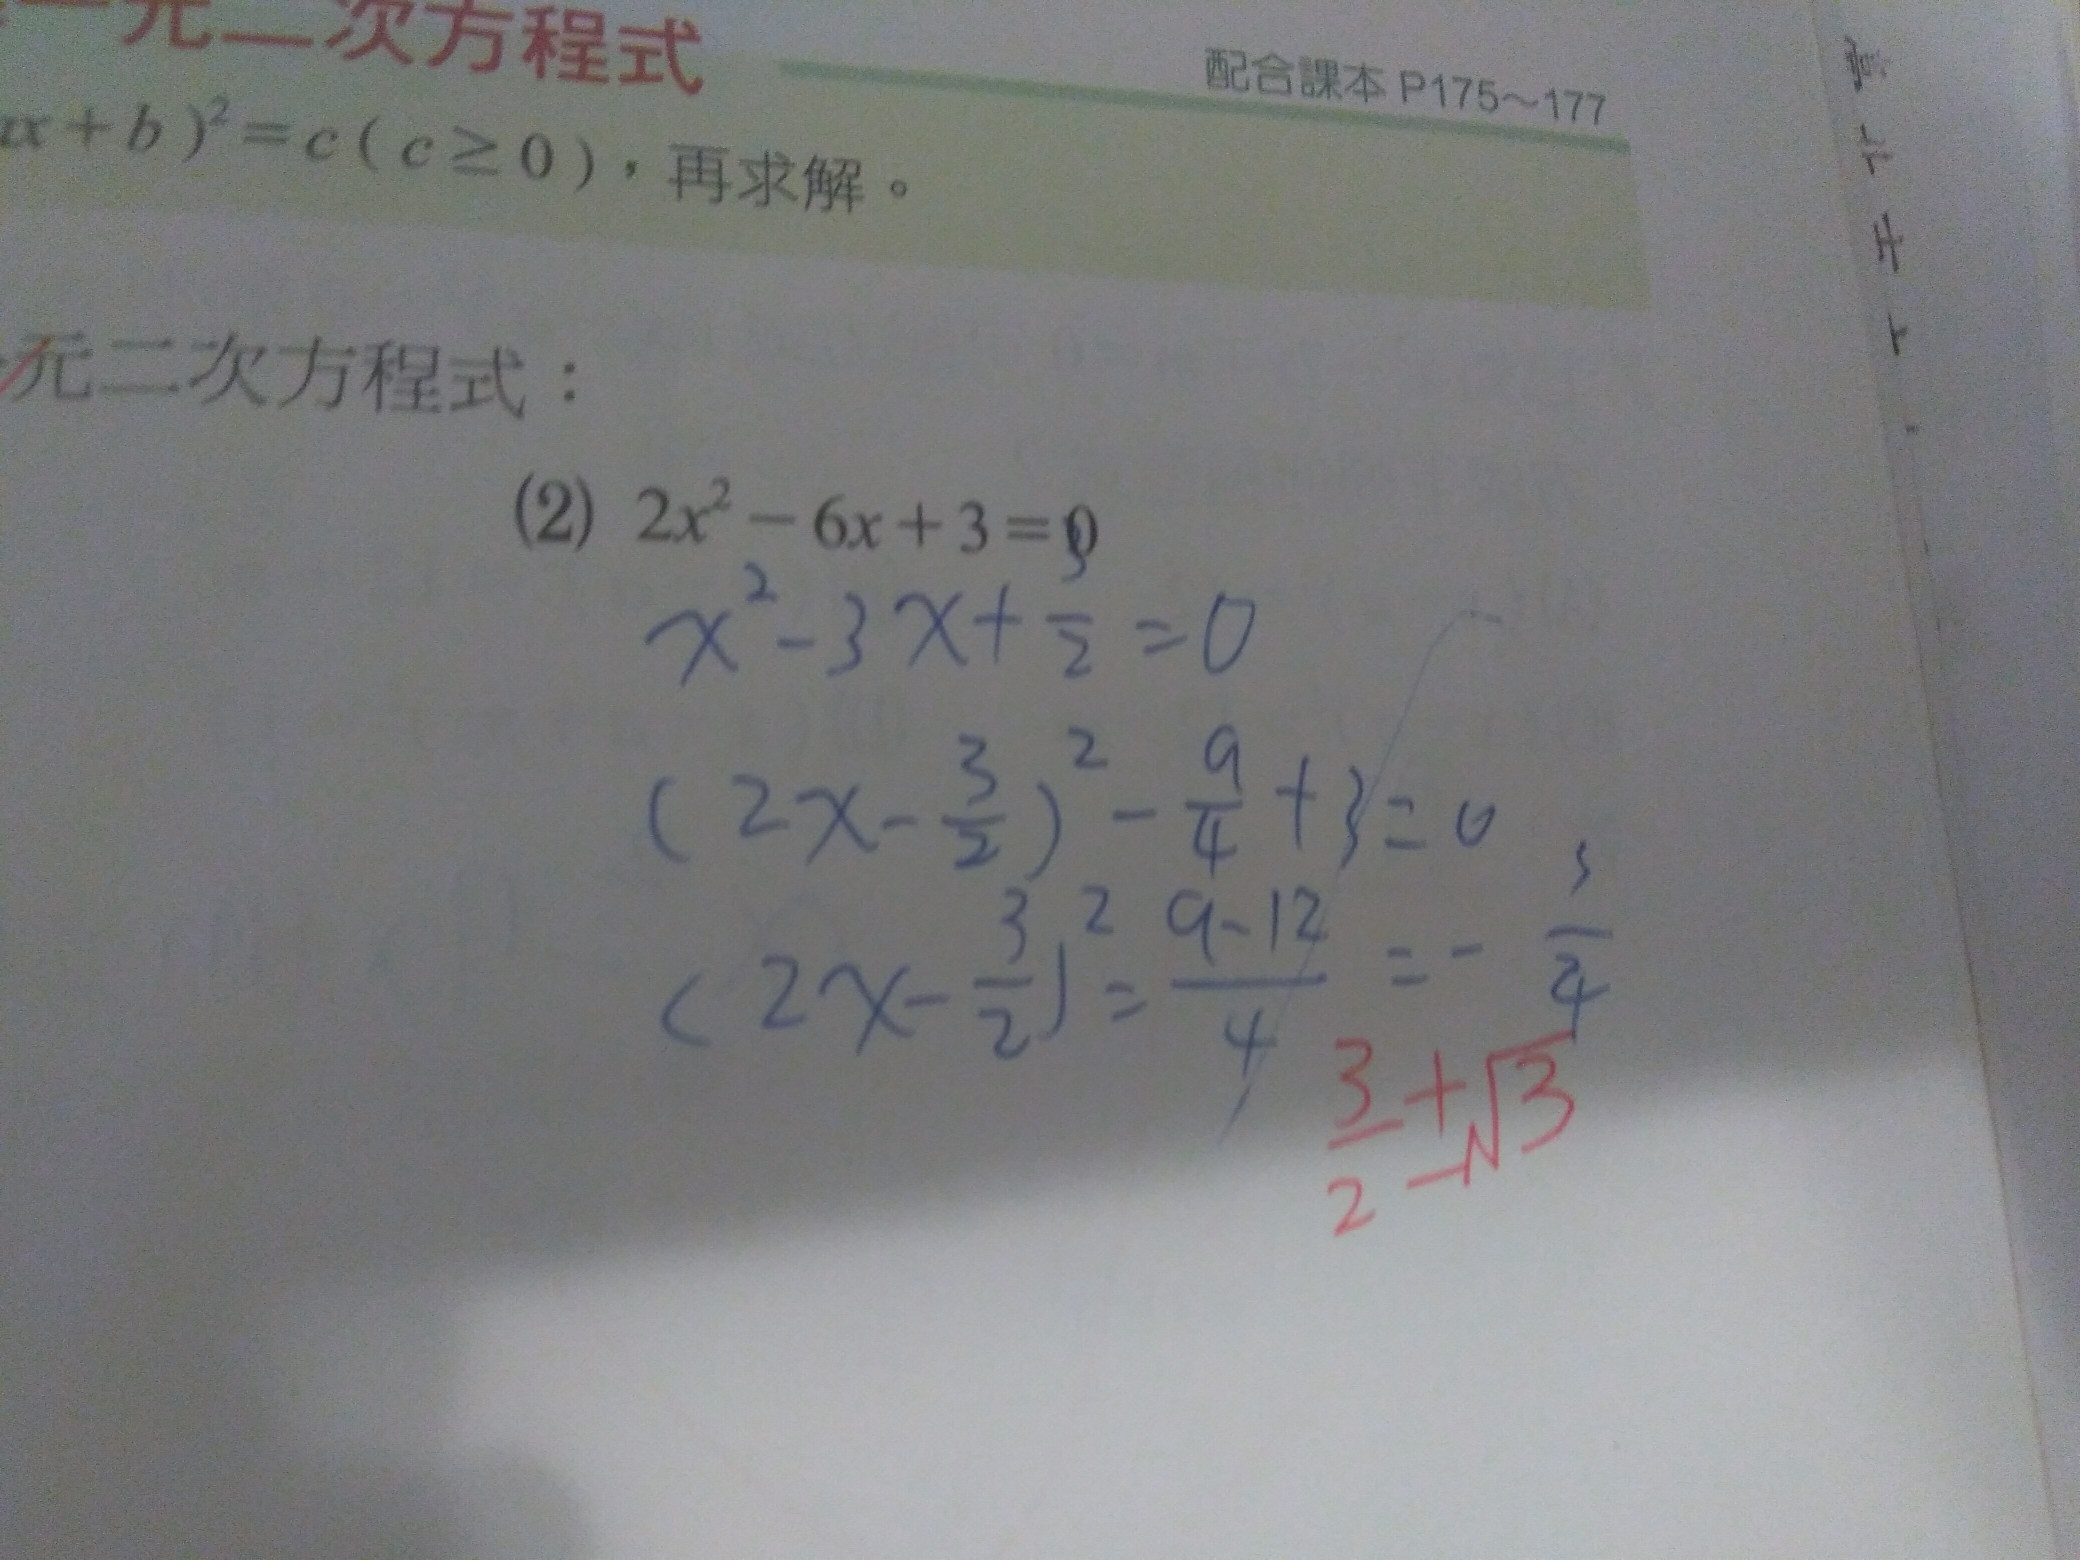 元二次方程式
配合課本 P175～177
x+b)²=c(c≧0)，再求解。
元二次方程式：
(2) 2x²-6x+3=0
x²-3x+3/2=0
(2x-3/2)²-9/4+3=0
(2x-3/2)²=9-12/4=-3/4
3/2±√3